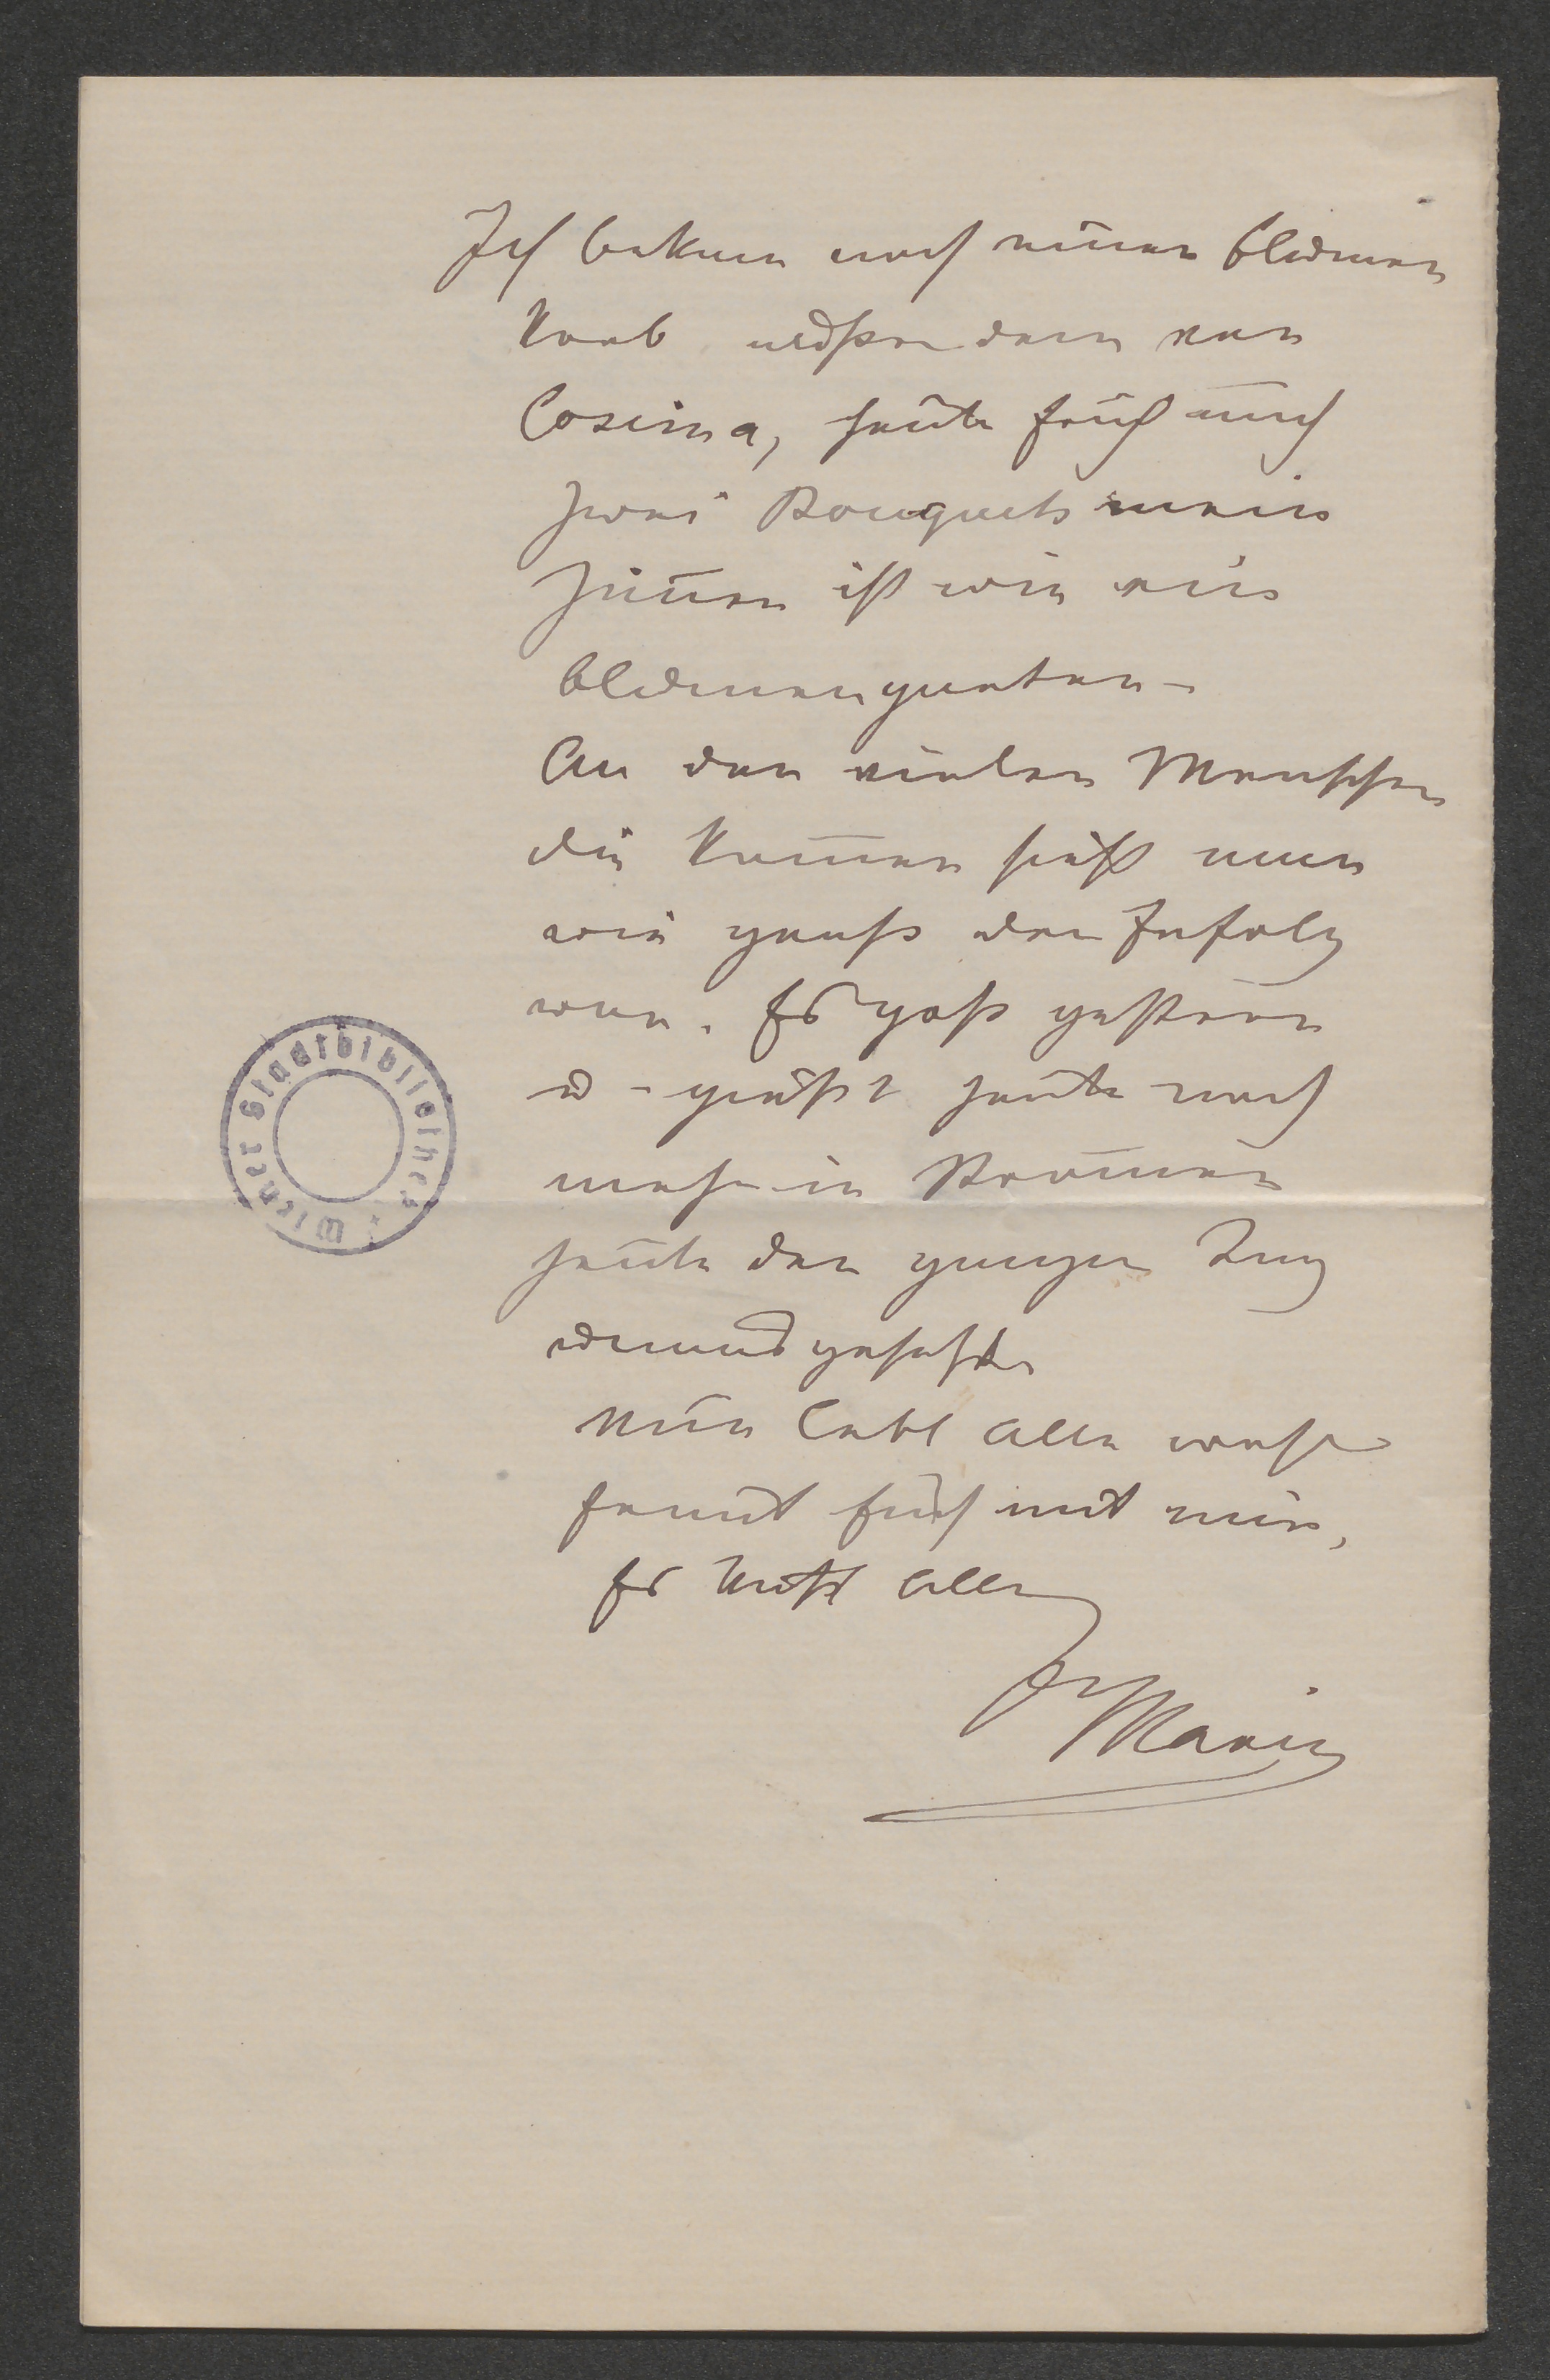 Ich bekam noch einen Blumen
Korb außer dem von
Cosima, heute früh auch
zwei Bouquets mein
Zim̅er ist wie ein
Blumengarten –
An den vielen Menschen
die kom̅en sieht man
wie groß der Erfolg
war. Es goß gestern
u – gießt heute noch
mehr in Strömen
heute den ganzen Tag
Nun lebt alle wohl
freut Euch mit mir,
Es küßt alle
Marie
Wiener Stadtbibliothek